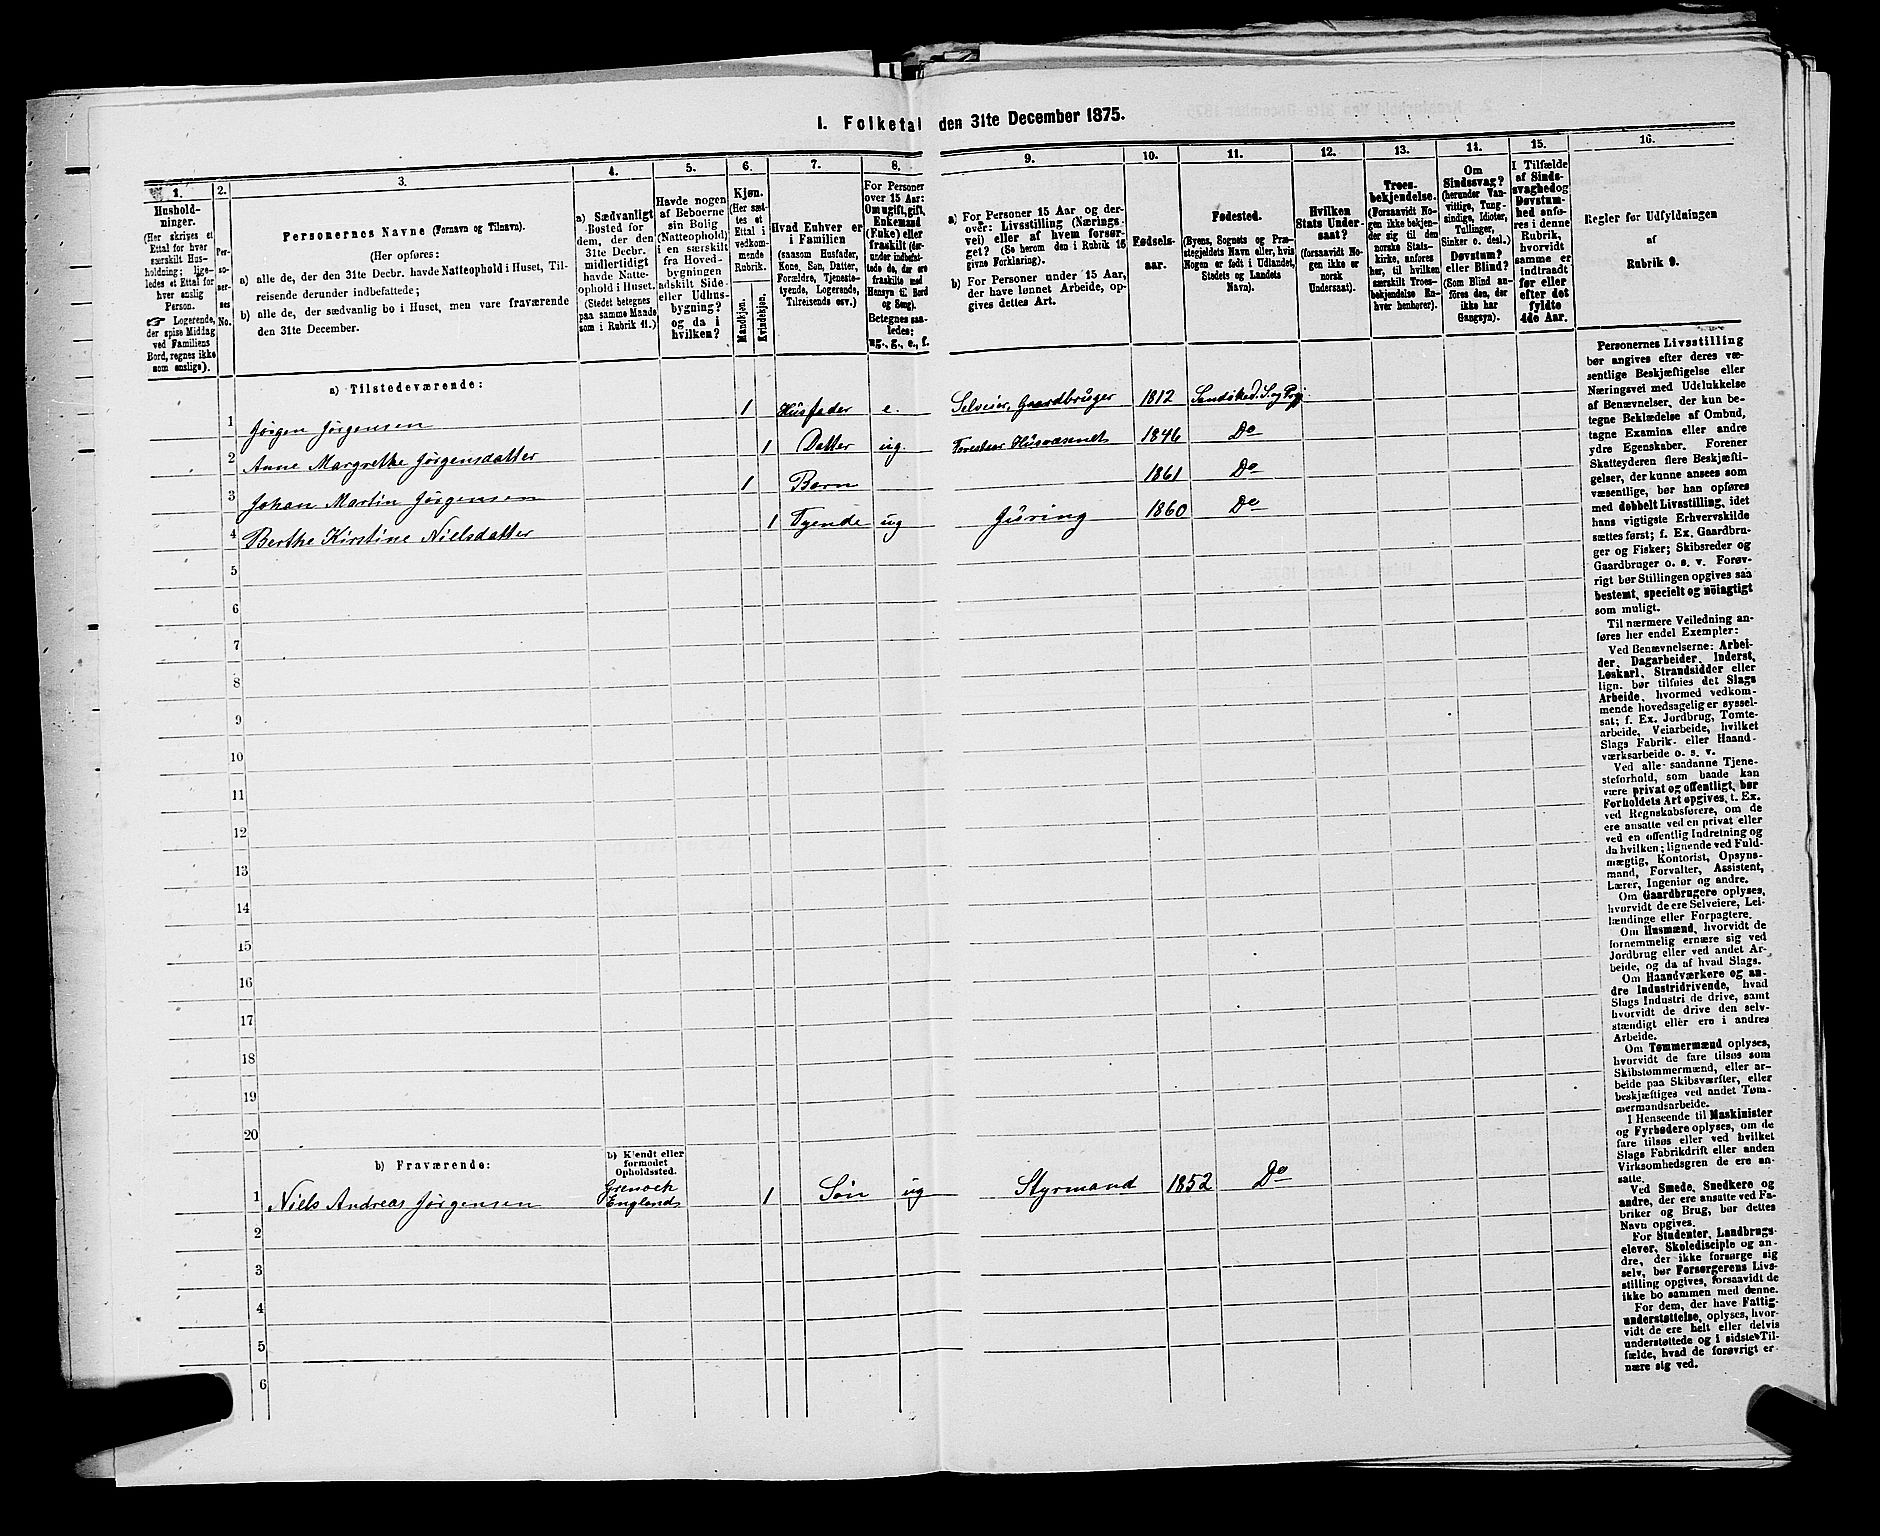 I. Folketal den 31te December 1875.
1.
Hushold-
ninger.
(Her skrives et
Ettal for hver
særskilt Hus-
holdning; lige-
ledes et Ettal for
hver enslig
Person.
☞ Logerende,
der spise Middag
ved Familiens
Bord, regnes ikke
som enslige).
2.
Per-
so-
ner-
nes
No.
3.
Personernes Navne (Fornavn og Tilnavn).
(Her opføres:
a) alle de, der den 31te Decbr. havde Natteophold i Huset, Til-
reisende derunder indbefattede;
b) alle de, der sædvanlig bo i Huset, men vare fraværende
den 31te December.
4.
a) Sædvanligt
Bosted for
dem, der den
31te Decbr.
midlertidigt
havde Natte-
ophold i Huset.
(Stedet betegnes
paa samme Maade
som i Rubrik 11.)
5.
Havde nogen
af Beboerne
sin Bolig
(Natteophold)
i en særskilt
fra Hoved-
bygningen
adskilt Side-
eller Udhus-
bygning?
og da i
hvilken?
6.
Kjøn.
(Her sæt-
tes et
Ettal i
vedkom-
mende
Rubrik.
Mandkjøn.
Kvindekjøn.
7.
Hvad Enhver er
i Familien
(saasom Husfader,
Kone, Søn, Datter,
Forældre, Tjeneste-
tyende, Logerende,
Tilreisende osv.)
8.
For Personer
over 15 Aar:
Om ugift, gift,
Enkemand
(Enke) eller
fraskilt (der-
under indbefat-
tede de, der ere
fraskilte med
Hensyn til Bord
og Seng).
Betegnes saa-
ledes:
ug., g., e., f.
9.
a) For Personer 15 Aar og der-
over: Livsstilling (Nærings-
vei) eller af hvem forsør-
get? (Se herom den i Rubrik 16
givne Forklaring).
b) For Personer under 15 Aar,
der have lønnet Arbeide, op-
gives dettes Art.
10.
Fødsels-
aar.
11.
Fødested.
(Byens, Sognets og Præ-
stegjeldets Navn eller, hvis
Nogen er født i Udlandet,
Stedets og Landets
Navn).
12.
Hvilken
Stats Under-
saat?
(forsaavidt No-
gen ikke er
norsk
Undersaat).
13.
Troes-
bekjendelse.
(Forsaavidt No-
gen ikke bekjen-
der sig til den
norske Stats-
kirke, anføres
her, til hvilken
særskilt Troes-
bekjendelse En-
hver henhører).
14.
Om
Sindssvag?
(herunder Van-
vittige, Tung-
sindige, Idioter,
Tullinger,
Sinker o. desl.)
Døvstum?
eller Blind?
(Som Blind an-
føres den, der
ikke har
Gangsyn).
15.
I Tilfælde
af Sinds-
svaghed og
Døvstum-
hed anfø-
res i denne
Rubrik,
hvorvidt
samme er
indtraadt
før eller
efter det
fyldte
4de Aar.
16.
Regler for Udfyldningen
af
Rubrik 9.
a) Tilstedeværende:
1 Jørgen Jørgensen 1 Husfader e. Selveier, Gaardbruger 1812 Sandøked. S. og Prg
2 Anne Margrethe Jørgensdatter 1 Datter ug. Forestaar Husvæsenet 1846 Do
3 Johan Martin Jørgensen 1 Barn 1861 Do
4 Berthe Kirstine Nielsdatter 1 Tyende ug 1860 Do
5
6
7
8
9
10
11
12
13
14
15
16
17
18
19
20
b) Fraværende:
b) Kjendt eller
formodet
Opholdssted.
1 Niels Andreas Jørgensen Grenock England 1 Søn ug Styrmand 1852 Do
2
3
4
5
6
Personernes Livsstilling
bør angives efter deres væ-
sentlige Beskjæftigelse eller
Næringsvei med Udelukkelse
af Benævnelser, der kun be-
tegne Beklædelse af Ombud,
tagne Examina eller andre
ydre Egenskaber. Forener
Skatteyderen flere Beskjæfti-
gelser, der kunne ansees som
væsentlige, bør han opføres
med dobbelt Livsstilling, idet
hans vigtigste Erhvervskilde
sættes først; f. Ex. Gaardbru-
ger og Fisker; Skibsreder og
Gaardbruger o. s. v. Forøv-
rigt bør Stillingen opgives saa
bestemt, specielt og nøiagtigt
som muligt.
Til nærmere Veiledning an-
føres her endel Exempler:
Ved Benævnelserne: Arbei-
der, Dagarbeider, Inderst,
Løskarl, Strandsidder eller
lign. bør tilføies det Slags
Arbeide, hvormed vedkom-
mende hovedsagelig er syssel-
sat; f. Ex. Jordbrug, Tomte-
arbeide, Veiarbeide, hvilket
Slags Fabrik- eller Haand-
værksarbeide o. s. v.
Ved alle saadanne Tjene-
steforhold, som baade kan
være privat og offentligt, bør
Forholdets Art opgives, t. Ex.
ved Regnskabsførere, om de
ere ansatte ved en privat eller
ved en offentlig Indretning og
da hvilken; lignende ved Fuld-
mægtig, Kontorist, Opsyns-
mand, Forvalter, Assistent,
Lærer, Ingeniør og andre.
Om Gaardbrugere oplyses,
hvorvidt de ere Selveiere, Lei-
lændinge eller Forpagtere.
Om Husmænd, hvorvidt de
fornemmelig ernære sig ved
Jordbrug eller ved andet Ar-
beide, og da af hvad Slags.
Om Haandværkere og an-
dre Industridrivende, hvad
Slags Industri de drive, samt
hvorvidt de drive den selv-
stændigt eller ere i andres
Arbeide.
Om Tømmermænd oplyses,
hvorvidt de fare tilsøs som
Skibstømmermænd, eller ar-
beide paa Skibsværfter, eller
beskjæftiges ved andet Tøm-
mermandsarbeide.
I Henseende til Maskinister
og Fyrbødere oplyses, om de
fare tilsøs eller ved hvilket
Slags Fabrikdrift eller anden
Virksomhedsgren de ere an-
satte.
Ved Smede, Snedkere og
andre, der ere ansatte ved Fa-
briker og Brug, bør dettes
Navn opgives.
For Studenter, Landbrugs-
elever, Skoledisciple og an-
dre, der ikke forsørge sig
selv, bør Forsørgerens Livs-
stilling opgives, forsaavidt de
ikke bo sammen med denne.
For dem, der have Fattig-
understøttelse, oplyses, hvor-
vidt de ere helt eller delvis
understøttede og i sidste Til-
fælde, hvad de forøvrigt er-
nære sig ved.